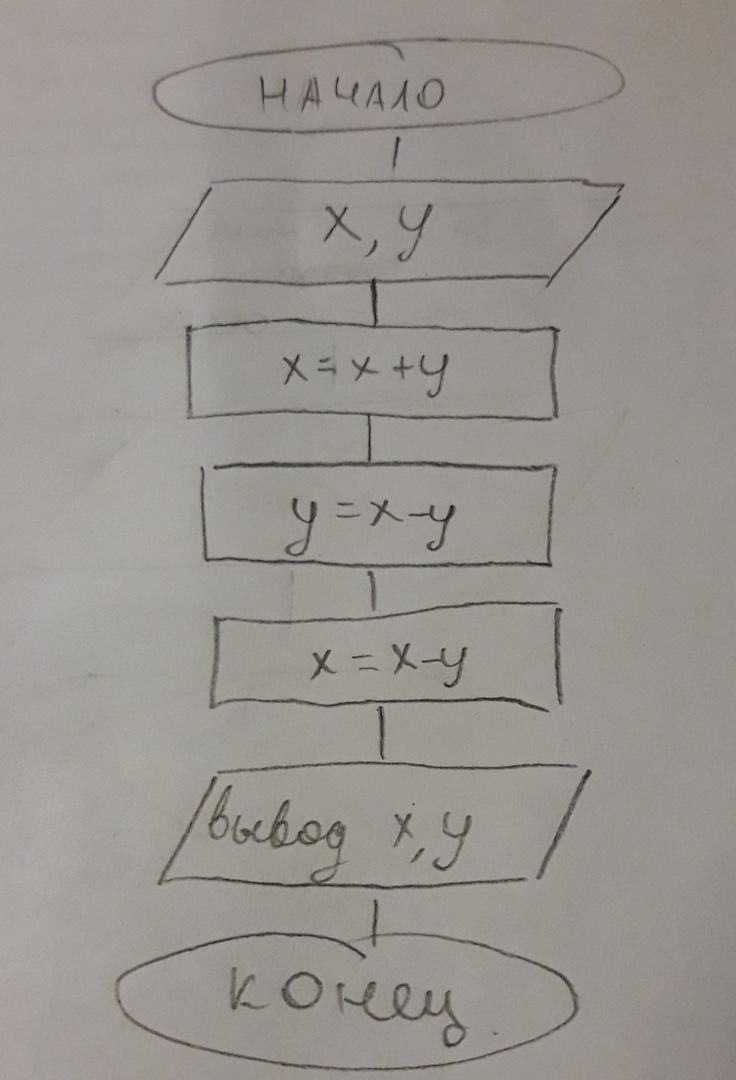 НАЧАЛО
x, y
x = x + y
y = x - y
x = x - y
вывод x, y
конец